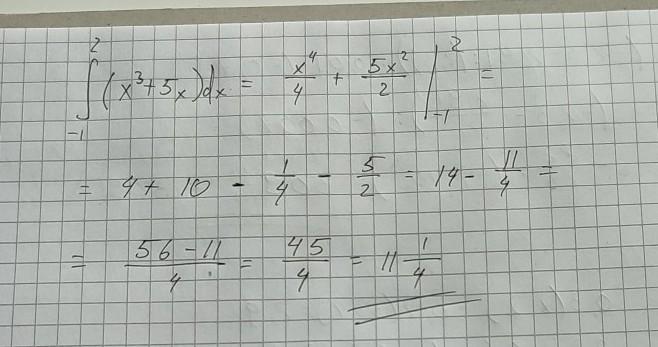 ∫₋₁² (x³+5x)dx = x⁴/4 + 5x²/2 |₋₁² =
= 4 + 10 - 1/4 - 5/2 = 14 - 11/4 =
= (56-11)/4 = 45/4 = 11 1/4